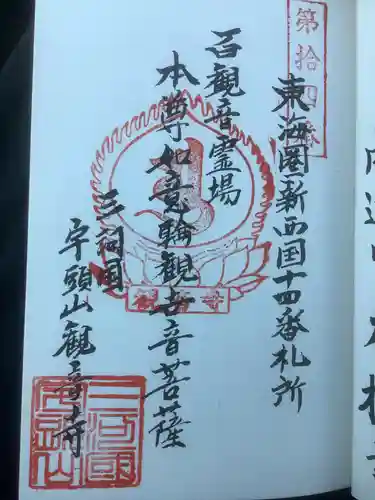 第拾四番
東海圏新西国十四番札所
百観音霊場
本尊如意輪観世音菩薩
三河国
宇頭山観音寺
観音寺
三河国
宇頭山